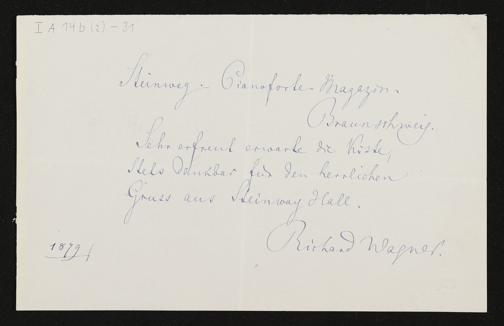 I A 14 b (2) - 31
Steinweg. Pianoforte-Magazin.
Braunschweig.
Sehr erfreut erwarte die Kiste,
Stets dankbar für den herrlichen
Gruss aus Steinway Hall.
Richard Wagner.
1879